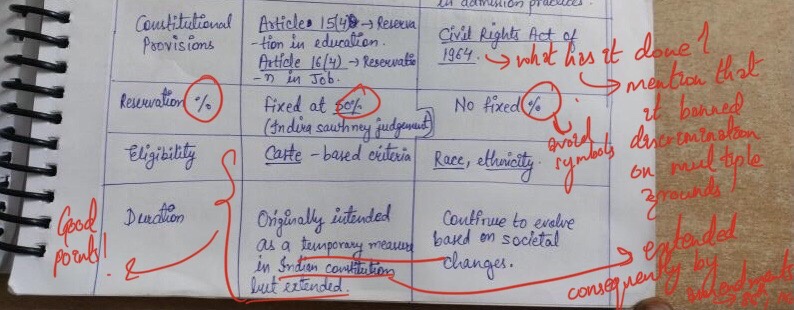 in admission practices.
Constitutional
Provisions
Article 15(4) → Reserva
-tion in education.
Article 16(4) → Reservatio
-n in Job.
Civil Rights Act of
1964. → what has it done?
→ mention that
it banned
discrimination
on multiple
grounds!
Reservation %
Fixed at 50%
(Indira sawhney judgement)
No fixed %
avoid
symbols
Eligibility
Caste - based criteria
Race, ethnicity.
Good
points!
Duration
Originally intended
as a temporary measure
in Indian constitution
but extended.
Continue to evolve
based on societal
changes.
extended
consequently by
amendments